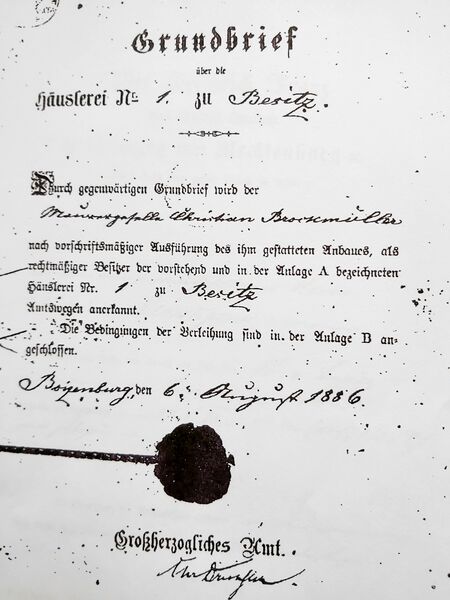 Grundbrief
über die
Häuslerei No 1. zu Besitz.
Durch gegenwärtigen Grundbrief wird der
Maurergeselle Christian Brockmüller
nach vorschriftsmäßiger Ausführung des ihm gestatteten Anbaues, als
rechtmäßiger Besitzer der vorstehend und in der Anlage A bezeichneten
Häuslerei Nr. 1 zu Besitz
Amtswegen anerkannt.
Die Bedingungen der Verleihung sind in der Anlage B an-
geschlossen.
Boizenburg, den 6. August 1886.
Großherzogliches Amt.